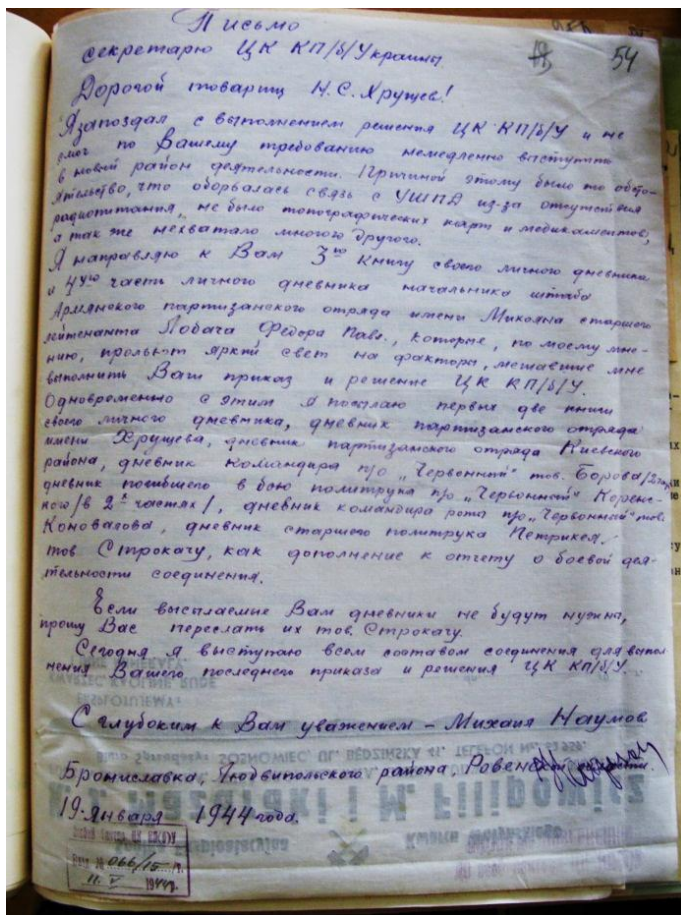 Письмо
секретарю ЦК КП/б/Украины
54
Дорогой товарищ Н.С.Хрущев!
Я запоздал с выполнением решения ЦК КП/б/У и не
смог по Вашему требованию немедленно выступить
в новый район деятельности. Причиной этому было то обсто-
ятельство, что оборвалась связь с УШПД из-за отсутствия
радиопитания, не было топографических карт и медикаментов,
а так же нехватало многого другого.
Я направляю к Вам 3ю книгу своего личного дневника
и 4ую часть личного дневника начальника штаба
Армянского партизанского отряда имени Микояна старшего
лейтенанта Лобача Федора Павл., которые, по моему мне-
нию, прольют яркий свет на факторы, мешавшие мне
выполнить Ваш приказ и решение ЦК КП/б/У.
Одновременно с этим я посылаю первых две книги
своего личного дневника, дневник партизанского отряда
имени Хрущева, дневник партизанского отряда Киевского
района, дневник командира п/о „Червонный" тов. Борова
дневник погибшего в бою политрука п/о „Червонный" Керенс-
кого /в 2х частях/, дневник командира роты п/о „Червонный" тов.
Коновалова, дневник старшего политрука Петрикея.
тов. Строкачу, как дополнение к отчету о боевой дея-
тельности соединения.
Если высылаемые Вам дневники не будут нужны,
прошу Вас переслать их тов. Строкачу.
Сегодня я выступаю всем составом соединения для выпол-
нения Вашего последнего приказа и решения ЦК КП/б/У.
KWARTC KAOLINE RUDE
EKSPLOJTUJEMY:
С глубоким к Вам уважением – Михаил Наумов
Biuro Sprzedaży: SOSNOWIEC, UL. BĘDZIŃSKA 41. TELEFON
Брониславка, Людвипольского района, Ровенской области.
i M. Filipowicz
19 января 1944 года.
066/15
11. V 1944г.